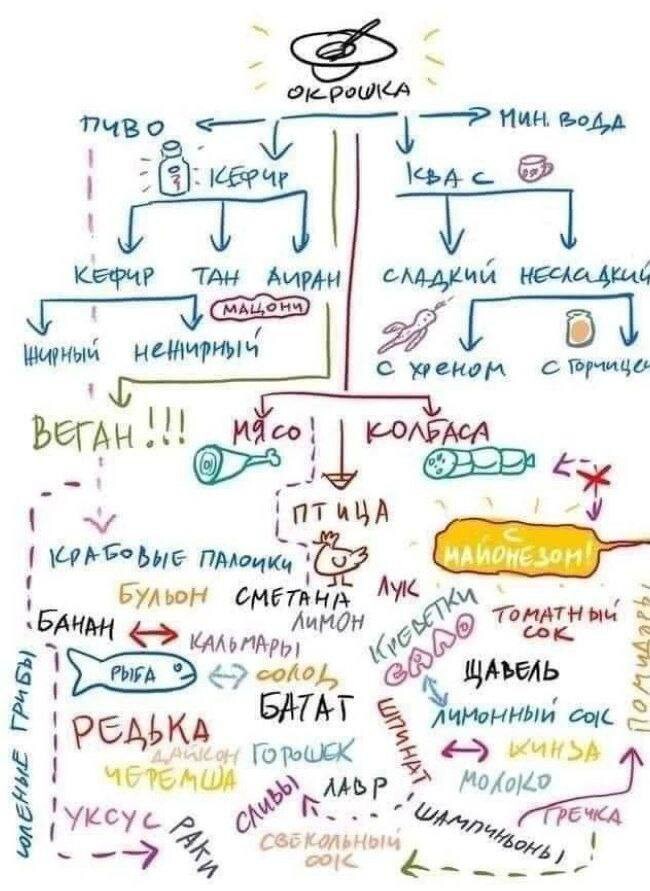 ОКРОШКА
ПИВО
МИН. ВОДА
КЕФИР
КВАС
КЕФИР ТАН АИРАН
МАЦОНИ
СЛАДКИЙ НЕСЛАДКИЙ
ЖИРНЫЙ НЕЖИРНЫЙ
С ХРЕНОМ С ГОРЧИЦЕЙ
ВЕГАН!!!
МЯСО
КОЛБАСА
ПТИЦА
С
МАЙОНЕЗОМ!
КРАБОВЫЕ ПАЛОЧКИ
БУЛЬОН
СМЕТАНА
ЛУК
БАНАН
КАЛЬМАРЫ
ЛИМОН
КРЕВЕТКИ
САЛО
ТОМАТНЫЙ
СОК
ПОМИДОРЫ
РЫБА
СОЛОД
ЩАВЕЛЬ
БАТАТ
ЛИМОННЫЙ СОК
СОЛЕНЫЕ ГРИБЫ
РЕДЬКА
ДАЙКОН
ГОРОШЕК
ШПИНАТ
КИНЗА
ЧЕРЕМША
МОЛОКО
УКСУС
РАКИ
СЛИВЫ
ЛАВР
ШАМПИНЬОНЫ
ГРЕЧКА
СВЕКОЛЬНЫЙ
СОК